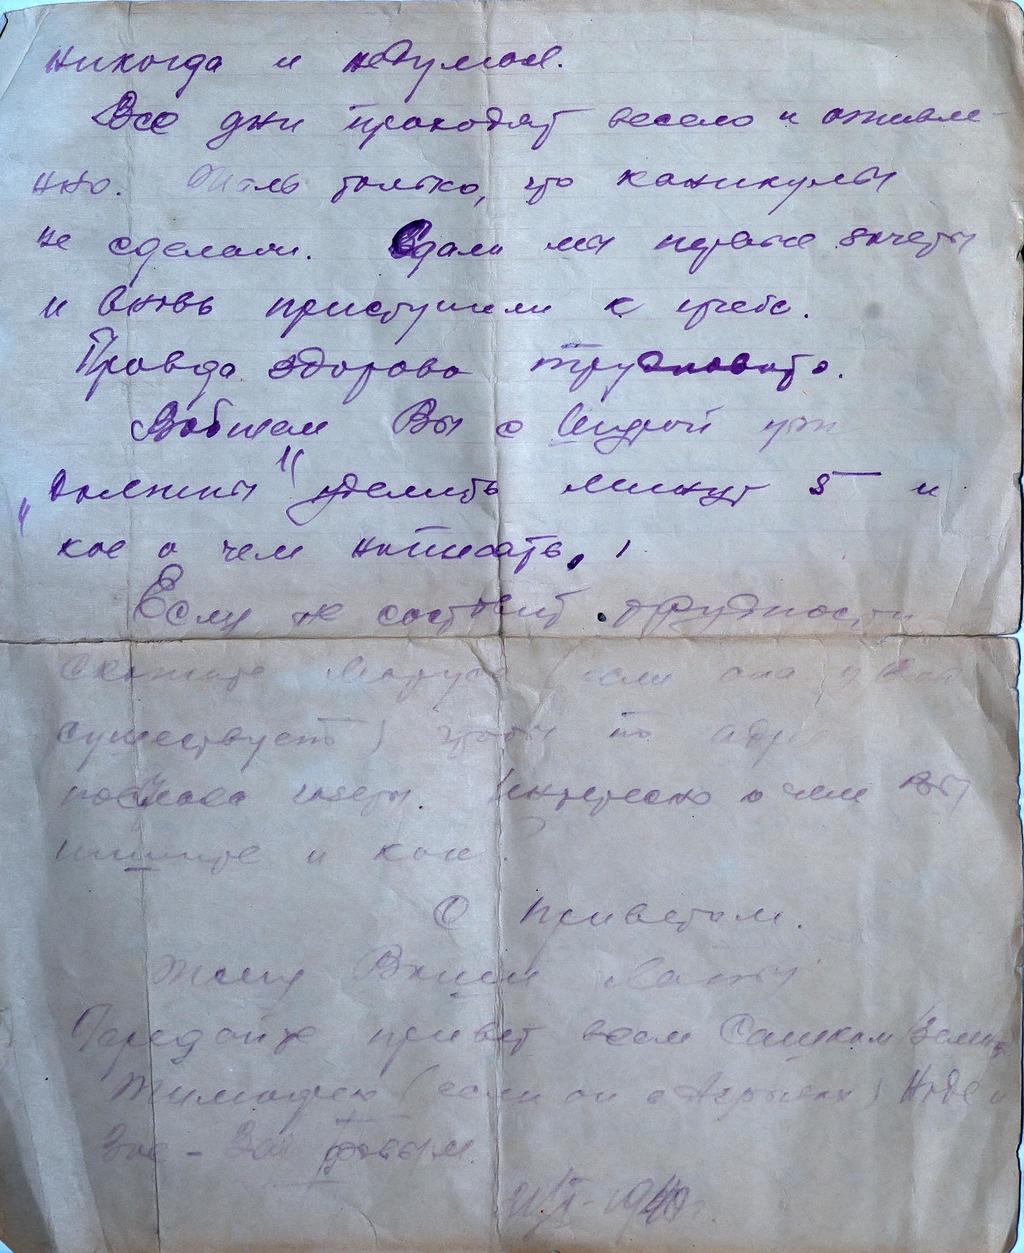 никогда и недумал.
Все дни проходят весело и оживле-
нно. Жаль только, что каникулы
не сделали. Сдали мы первые зачеты
и вновь приступили к учебе.
Правда здорово трудновато.
Вобщем Вы с Шурой уж
"должны" уделить минут 5 и
кое о чем написать, !
Если не составит трудности
скажите (если она у Вас
существует) чтобы по
газеты. Интересно о чем Вы
пишите и как?
С приветом.
Жму Ваши лапы
Передайте привет всем Сашкам
(если он в ) Наде и
Зое -
1940г.